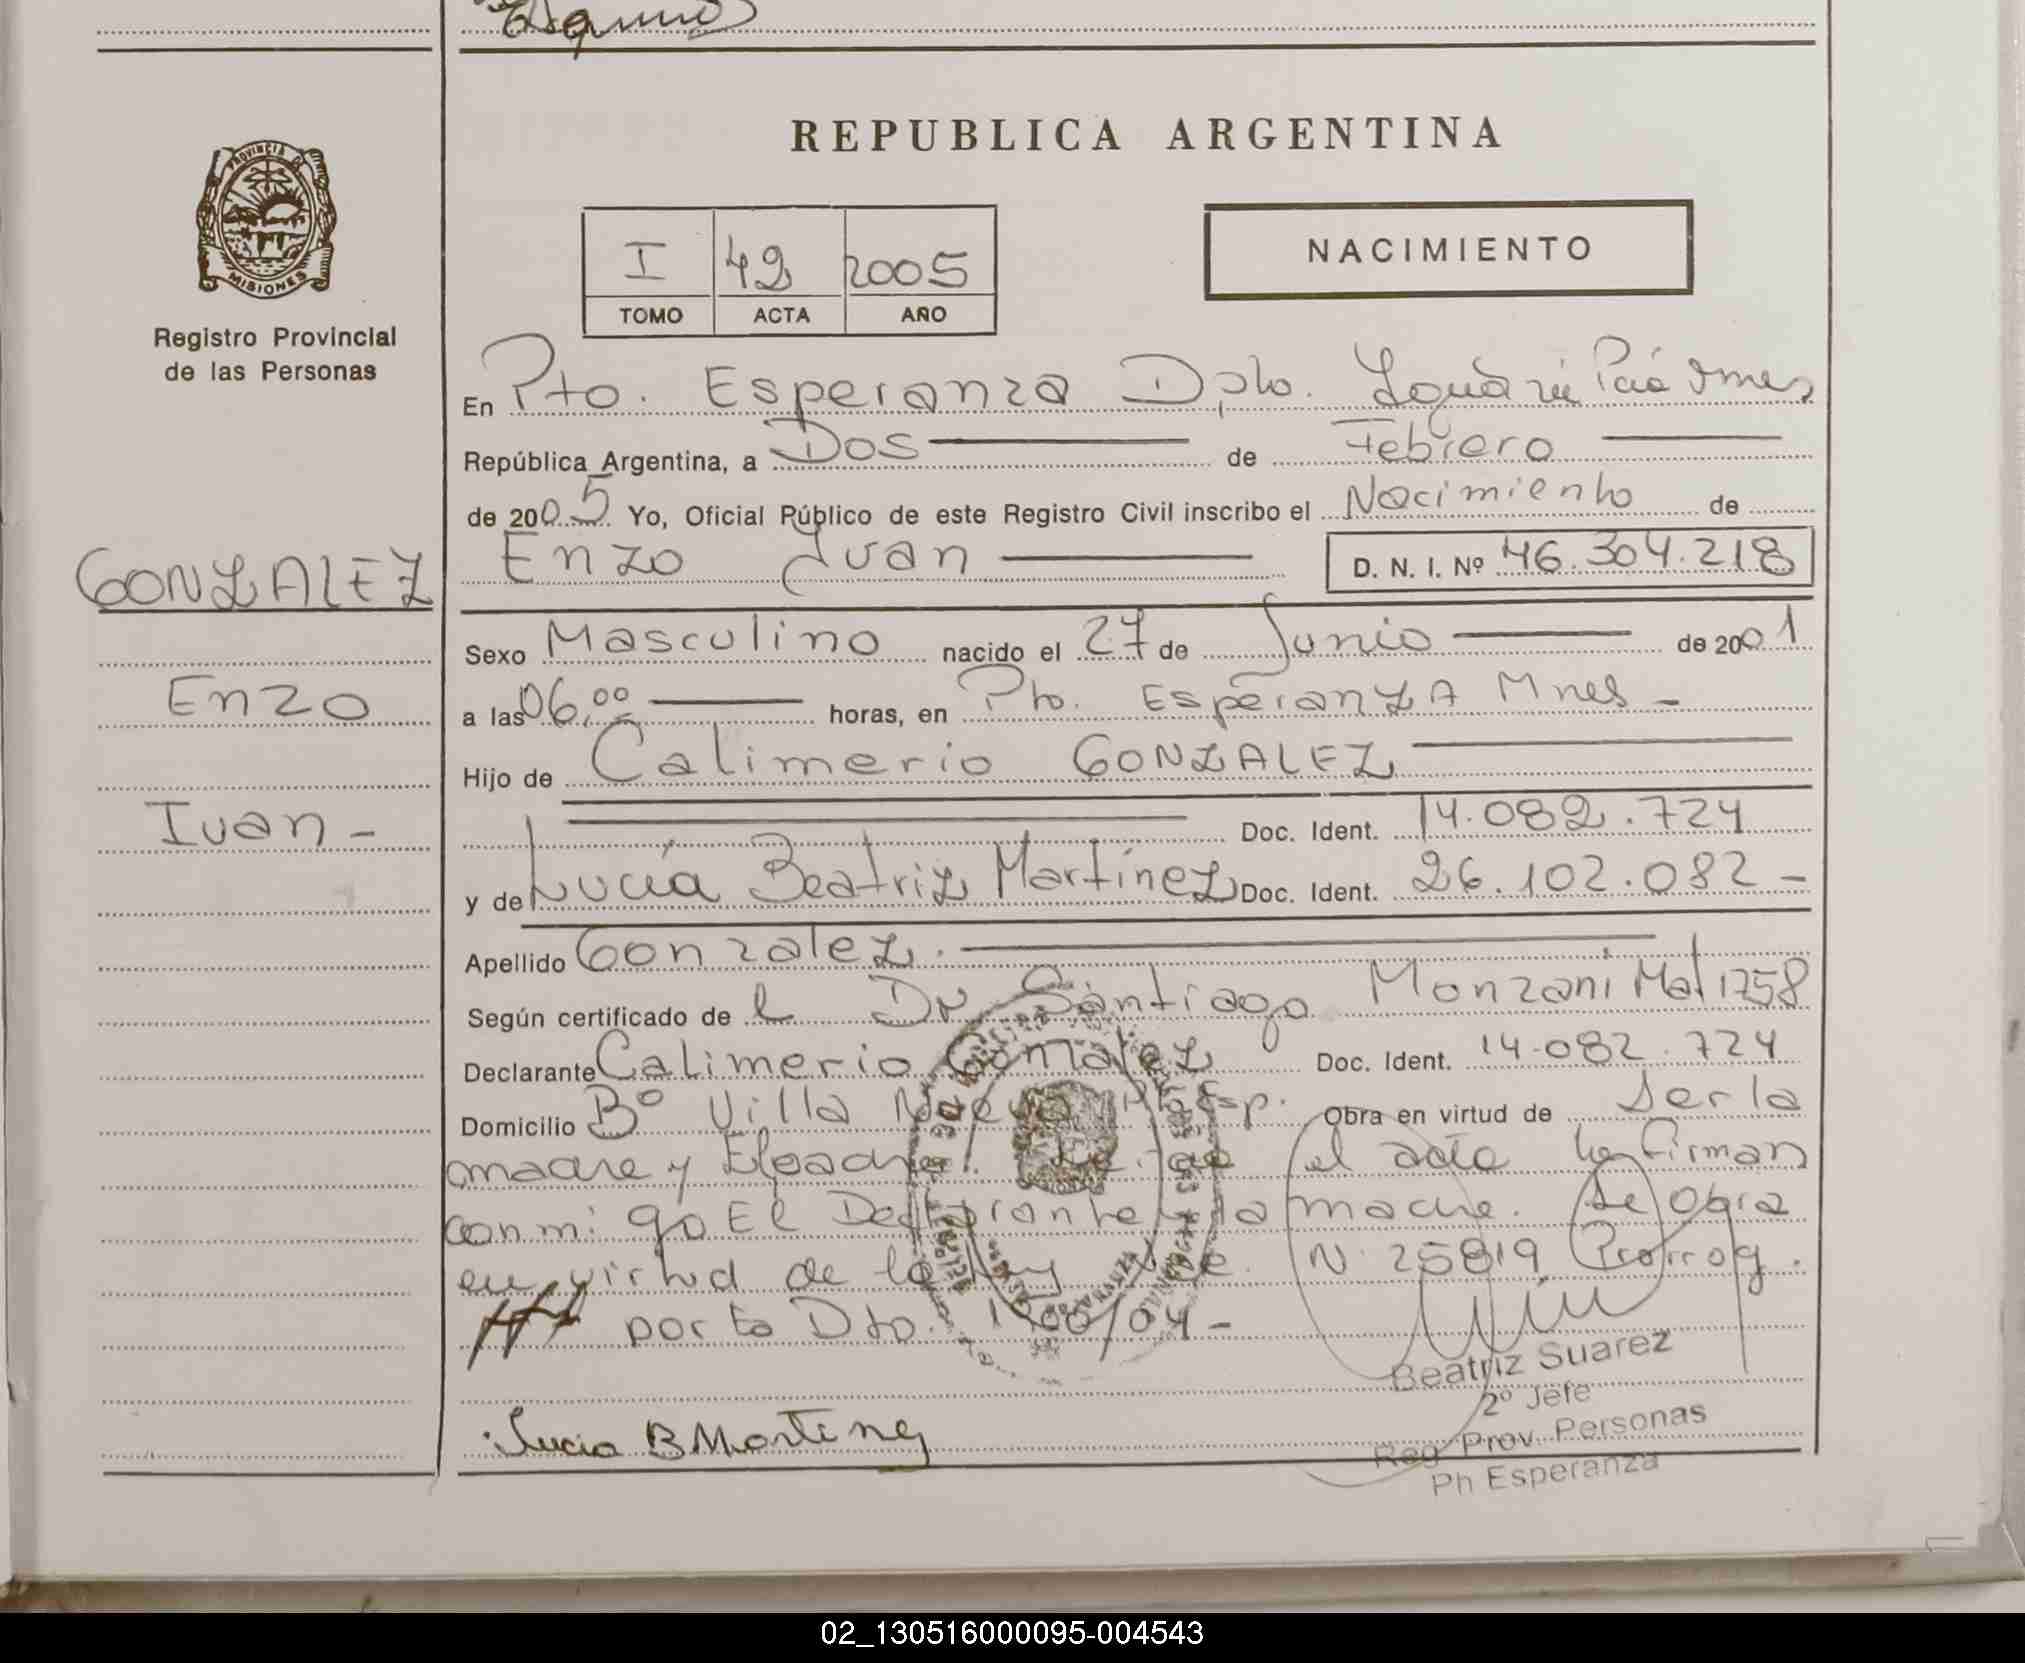 REPUBLICA ARGENTINA
PROVINCIA DE MISIONES
Registro Provincial
de las Personas
I 42 2005
TOMO ACTA AÑO
NACIMIENTO
En Pto. Esperanza Dpto. Iguazú Pcia Mnes
República Argentina, a Dos de Febrero
de 2005 Yo, Oficial Público de este Registro Civil inscribo el Nacimiento de
GONZALEZ
Enzo Ivan D. N. I. Nº 46.304.218
Sexo Masculino nacido el 27 de Junio de 2001
Enzo
a las 06,00 horas, en Pto. Esperanza Mnes -
Hijo de Calimerio GONZALEZ
Ivan -
Doc. Ident. 14.082.724
y de Lucía Beatriz Martínez Doc. Ident. 26.102.082 -
Apellido Gonzalez.
Según certificado de l Dr Santiago Monzani Mat 1758
Declarante Calimerio Gonzalez Doc. Ident. 14.082.724
Domicilio Bº Villa Nueva Pto Esp. Obra en virtud de Ser la
madre y El padre. el acta la firman
con migo El Declarante y la madre. Se obra
en virtud de la Ley Nº 25819 Prorrog.
por to Dto. 1900/04 -
Lucia B Martinez
Beatriz Suarez
2º Jefe
Reg Prov. Personas
Pto Esperanza
02_130516000095-004543